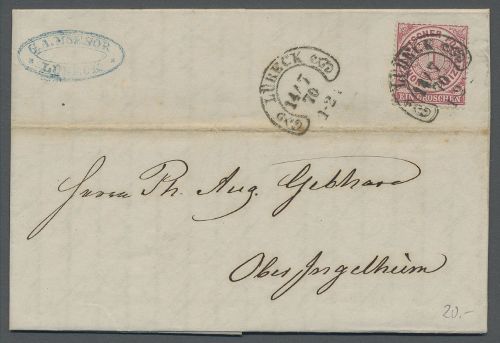 LÜBECK
LÜBECK
14/7
70
1-2
LÜBECK
14/7
70
EIN GROSCHEN
Herrn Ph. Aug. Gebhard
Ober Ingelheim
20.-